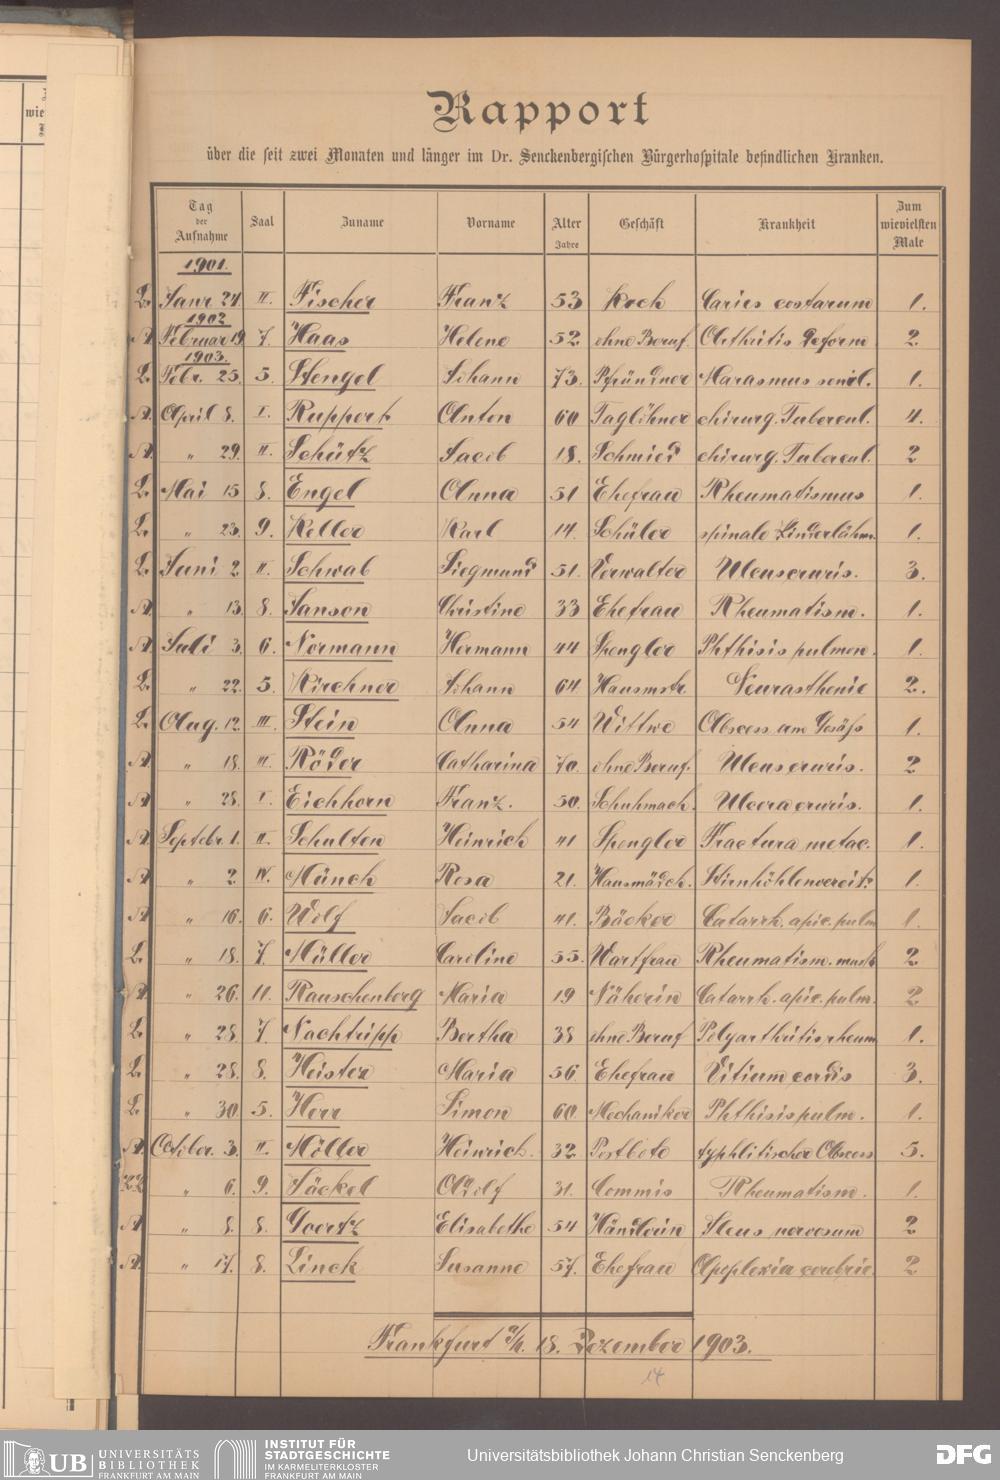 wie
Rapport
über die seit zwei Monaten und länger im Dr. Senckenbergischen Bürgerhospitale befindlichen Kranken.
Tag der Aufnahme Saal Zuname Vorname Alter Jahre Geschäft Krankheit Zum wievielsten Male
1901.
L. Janr. 24. II. Fischer Franz 53 Koch Caries costarum 1.
1902
A. Februar 19. 7. Haas Helene 52 ohne Beruf. Arthritis deform. 2
1903.
L. Febr. 25. 5. Stengel Johann 73. Pfründner Marasmus senil. 1.
A. April 8. I. Ruppert Anton 60 Taglöhner chirurg. Tubercul. 4.
A. " 29. II. Schütz Jacob 18. Schmied chirurg. Tubercul. 2
L. Mai 15 8. Engel Anna 51 Ehefrau Rheumatismus 1.
L. " 23. 9. Keller Karl 14. Schüler spinale Kinderlähm. 1.
L. Juni 2. II. Schwab Siegmund 51. Verwalter Ulcus cruris. 3.
A. " 13. 8. Janson Christine 33 Ehefrau Rheumatism. 1.
A. Juli 3. 6. Normann Hermann 44 Spengler Phthisis pulmon. 1.
L. " 22. 5. Kirchner Johann 64. Hausmstr. Neurasthenie 2.
L. Aug. 12. III. Stein Anna 54 Wittwe Abscess am Gesäß 1.
A. " 18. III. Röder Catharina 70. ohne Beruf. Ulcus cruris. 2
A. " 28. I. Eichhorn Franz. 50. Schuhmach. Ulcera cruris. 1.
A. Septbr. 1. II. Schulten Heinrich 41 Spengler Fractura metac. 1.
A. " 2. IV. Münch Rosa 21. Hausmädch. Stirnhöhlenvereit. 1.
A. " 16. 6. Wolf Jacob 41. Bäcker Catarrh. apic. pulm 1.
L. " 18. 7. Müller Caroline 55. Wartfrau Rheumatism. musk 2
A. " 26. 11. Rauschenberg Maria 19 Näherin Catarrh. apic. pulm. 2
L. " 28. 7. Nachtripp Bertha 38 ohne Beruf Polyarthritis rheum 1.
L. " 28. 8. Heister Maria 56. Ehefrau Vitium cordis 3.
L. " 30. 5. Herr Simon 60. Mechaniker Phthisis pulm. 1.
A. October. 3. II. Möller Heinrich. 32 Postbote typhlitischer Abscess 5.
" 6. 9. Jäckel Adolf 31. Commis Rheumatism. 1.
A. " 8. 8. Goertz Elisabethe 54 Händlerin Ileus nervosum 2
A. " 17. 8. Linck Susanne 57. Ehefrau Apoplexia cerebri. 2
Frankfurt a/M. 18. Dezember 1903.
14
UB UNIVERSITÄTS BIBLIOTHEK FRANKFURT AM MAIN
INSTITUT FÜR STADTGESCHICHTE IM KARMELITERKLOSTER FRANKFURT AM MAIN
Universitätsbibliothek Johann Christian Senckenberg
DFG